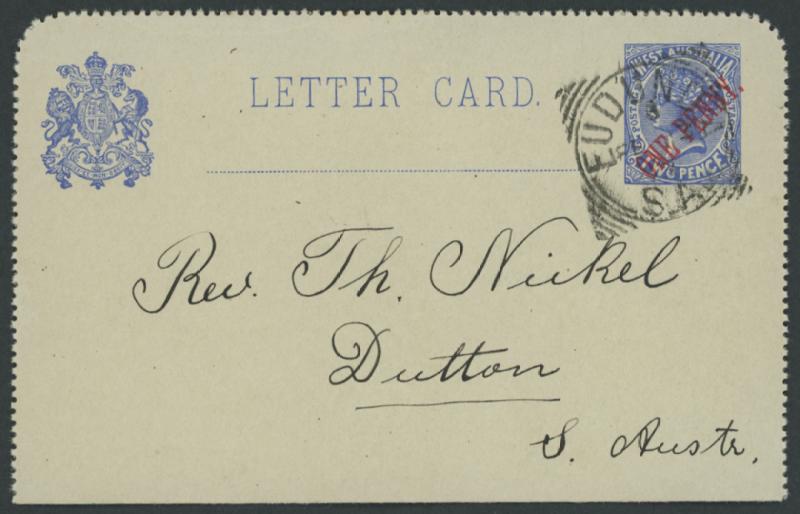 LETTER CARD.
WEST AUSTRALIA
POSTAGE
ONE PENNY.
TWO PENCE
EUDUN
S.A
Rev. Th. Nickel
Dutton
S. Austr.